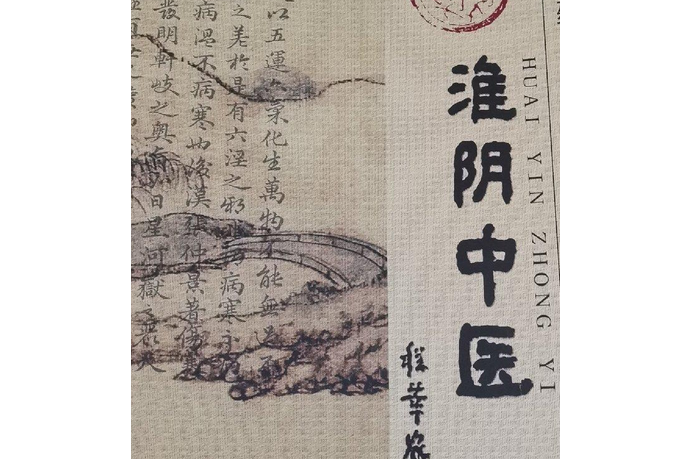 淮阴中医
HUAI YIN ZHONG YI
程莘农
以五運氣化生萬物不能無過不
之差於是有六淫之邪病寒
病溫不病寒也後漢張仲景著傷寒
發明軒岐之奧日星河嶽之麗天